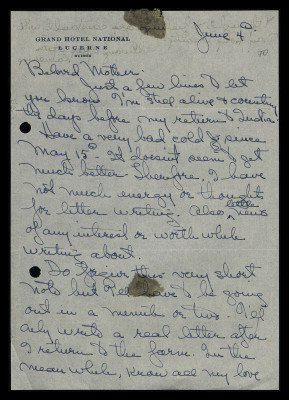 GRAND HOTEL NATIONAL
LUCERNE
SUISSE
June 4th
Beloved Mother:
Just a few lines to let
you know I'm still alive & counting
the days before my return to India.
Have a very bad cold & since
May 15th. It doesn't seem to get
much better. Therefore, I have
not much energy or thoughts
for letter writing. Also, little news
of any interest or worth while
writing about.
Do forgive this very short
note but I have to be going
out in a minute or two. I'll
only write a real letter after
I return to the farm. In the
mean while, know all my love